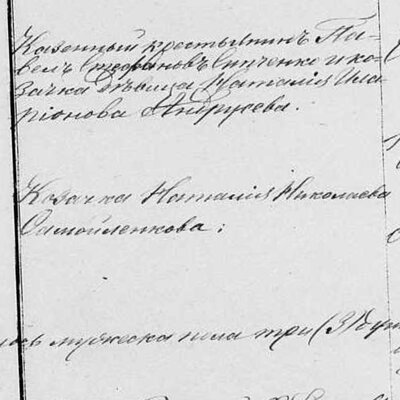 Казенный крестьянинъ Па-
велъ Стефановъ Сипченко и ко-
зачка дѣвица Наталія Ила-
ріонова Андрусева.
Козачка Наталія Николаева
Самойленкова;
лось мужеска пола три (3)